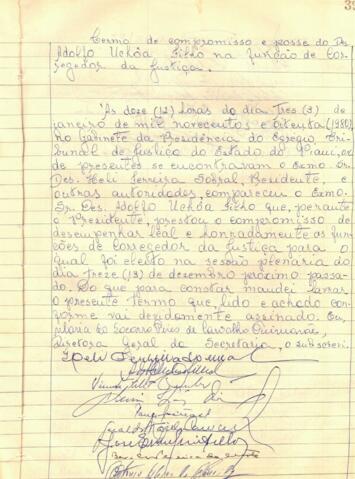 Termo de compromisso e posse do Des.
Adolfo Uchôa Filho na função de Cor-
regedor da Justiça.
Às doze (12) horas do dia Tres (3) de
janeiro de mil novecentos e oitenta (1980)
no Gabinete da Presidência do Egregio Tri-
bunal de Justiça do Estado do Piauí, on
de presentes se encontravam o Exmo. Sr.
Des. Heli Ferreira Sobral, Presidente, e
outras autoridades compareceu o Exmo.
Sr. Des. Adolfo Uchôa Filho que, perante
o Presidente, prestou o compromisso de
desempenhar leal e honradamente as fun-
ções de Corregedor da Justiça para o
qual foi eleito na sessão plenária do
dia treze (13) de dezembro próximo passa-
do. Do que para constar mandei lavrar
o presente termo que, lido e achado con-
forme vai devidamente assinado. Eu,
do Socorro Pires de Carvalho
Diretora Geral da Secretaria, o subscrevi.